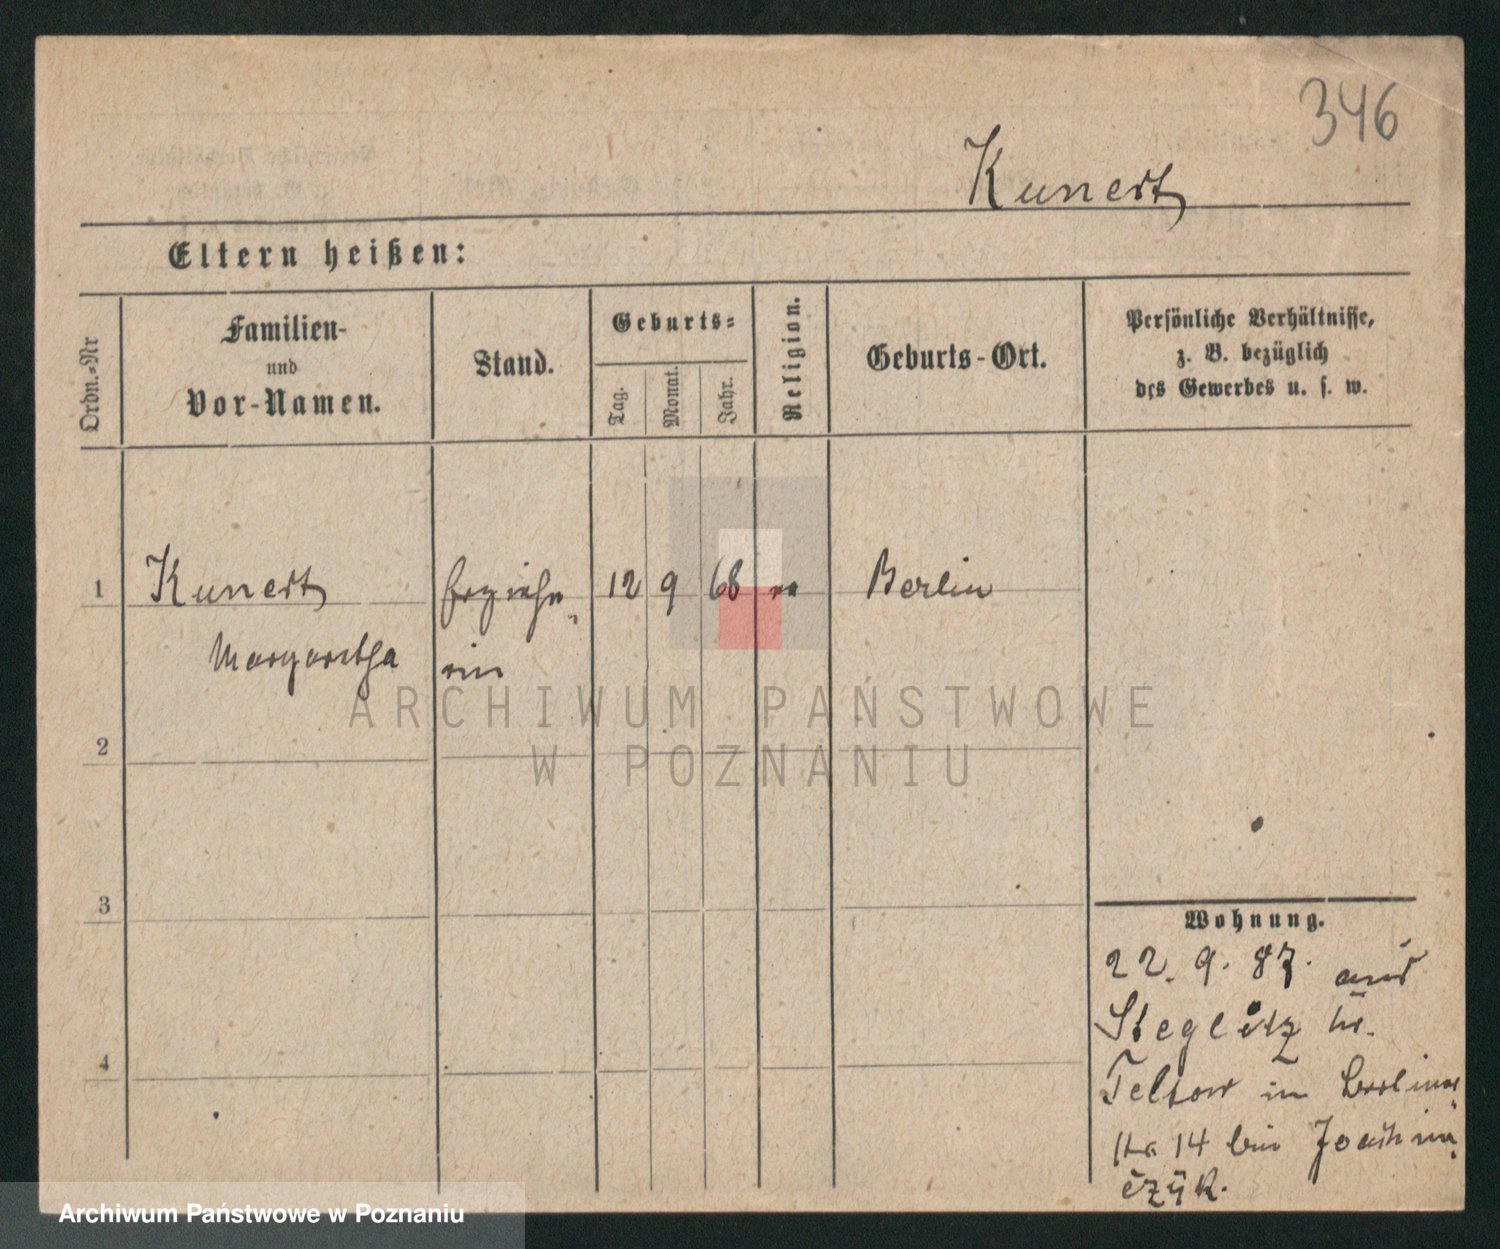 346
Kunert
Eltern heißen:
Ordn.-Nr
Familien-
und
Vor-Namen.
Stand.
Geburts-
Tag.
Monat.
Jahr.
Religion.
Geburts-Ort.
Persönliche Verhältnisse,
z. B. bezüglich
des Gewerbes u. s. w.
1
Kunert
Erziehe-
12
9
68
Berlin
Margaretha
rin
ARCHIWUM PAŃSTWOWE
W POZNANIU
2
3
4
Wohnung.
22. 9. 87. aus
Steglitz
Teltow in Berliner
14 bei Joachim
czyk.
Archiwum Państwowe w Poznaniu